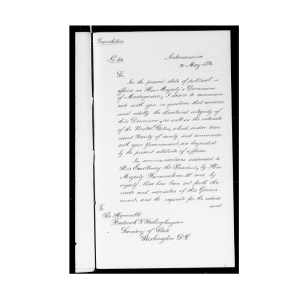 Translation
No. 
Antananarivo
May 188
Sir
In the present state of political
affairs in Her Majesty's Dominions
of Madagascar, I desire to communi-
cate with you in question that concern
most vitally the territorial integrity of
this Dominion, as well as the interests
of the United States, which under ever
sacred Treaty of amity and commerce
with your Government, are imperiled
by the present attitude of affairs.
In communications addressed to
His Excellency the President, by Her
Majesty Ranavalona III and by
myself, that has been set forth the
needs and desires of this Govern-
ment, and the requests for the interest
and
To
The Honorable
Frederick T. Frelinghuysen
Secretary of State
Washington D.C.